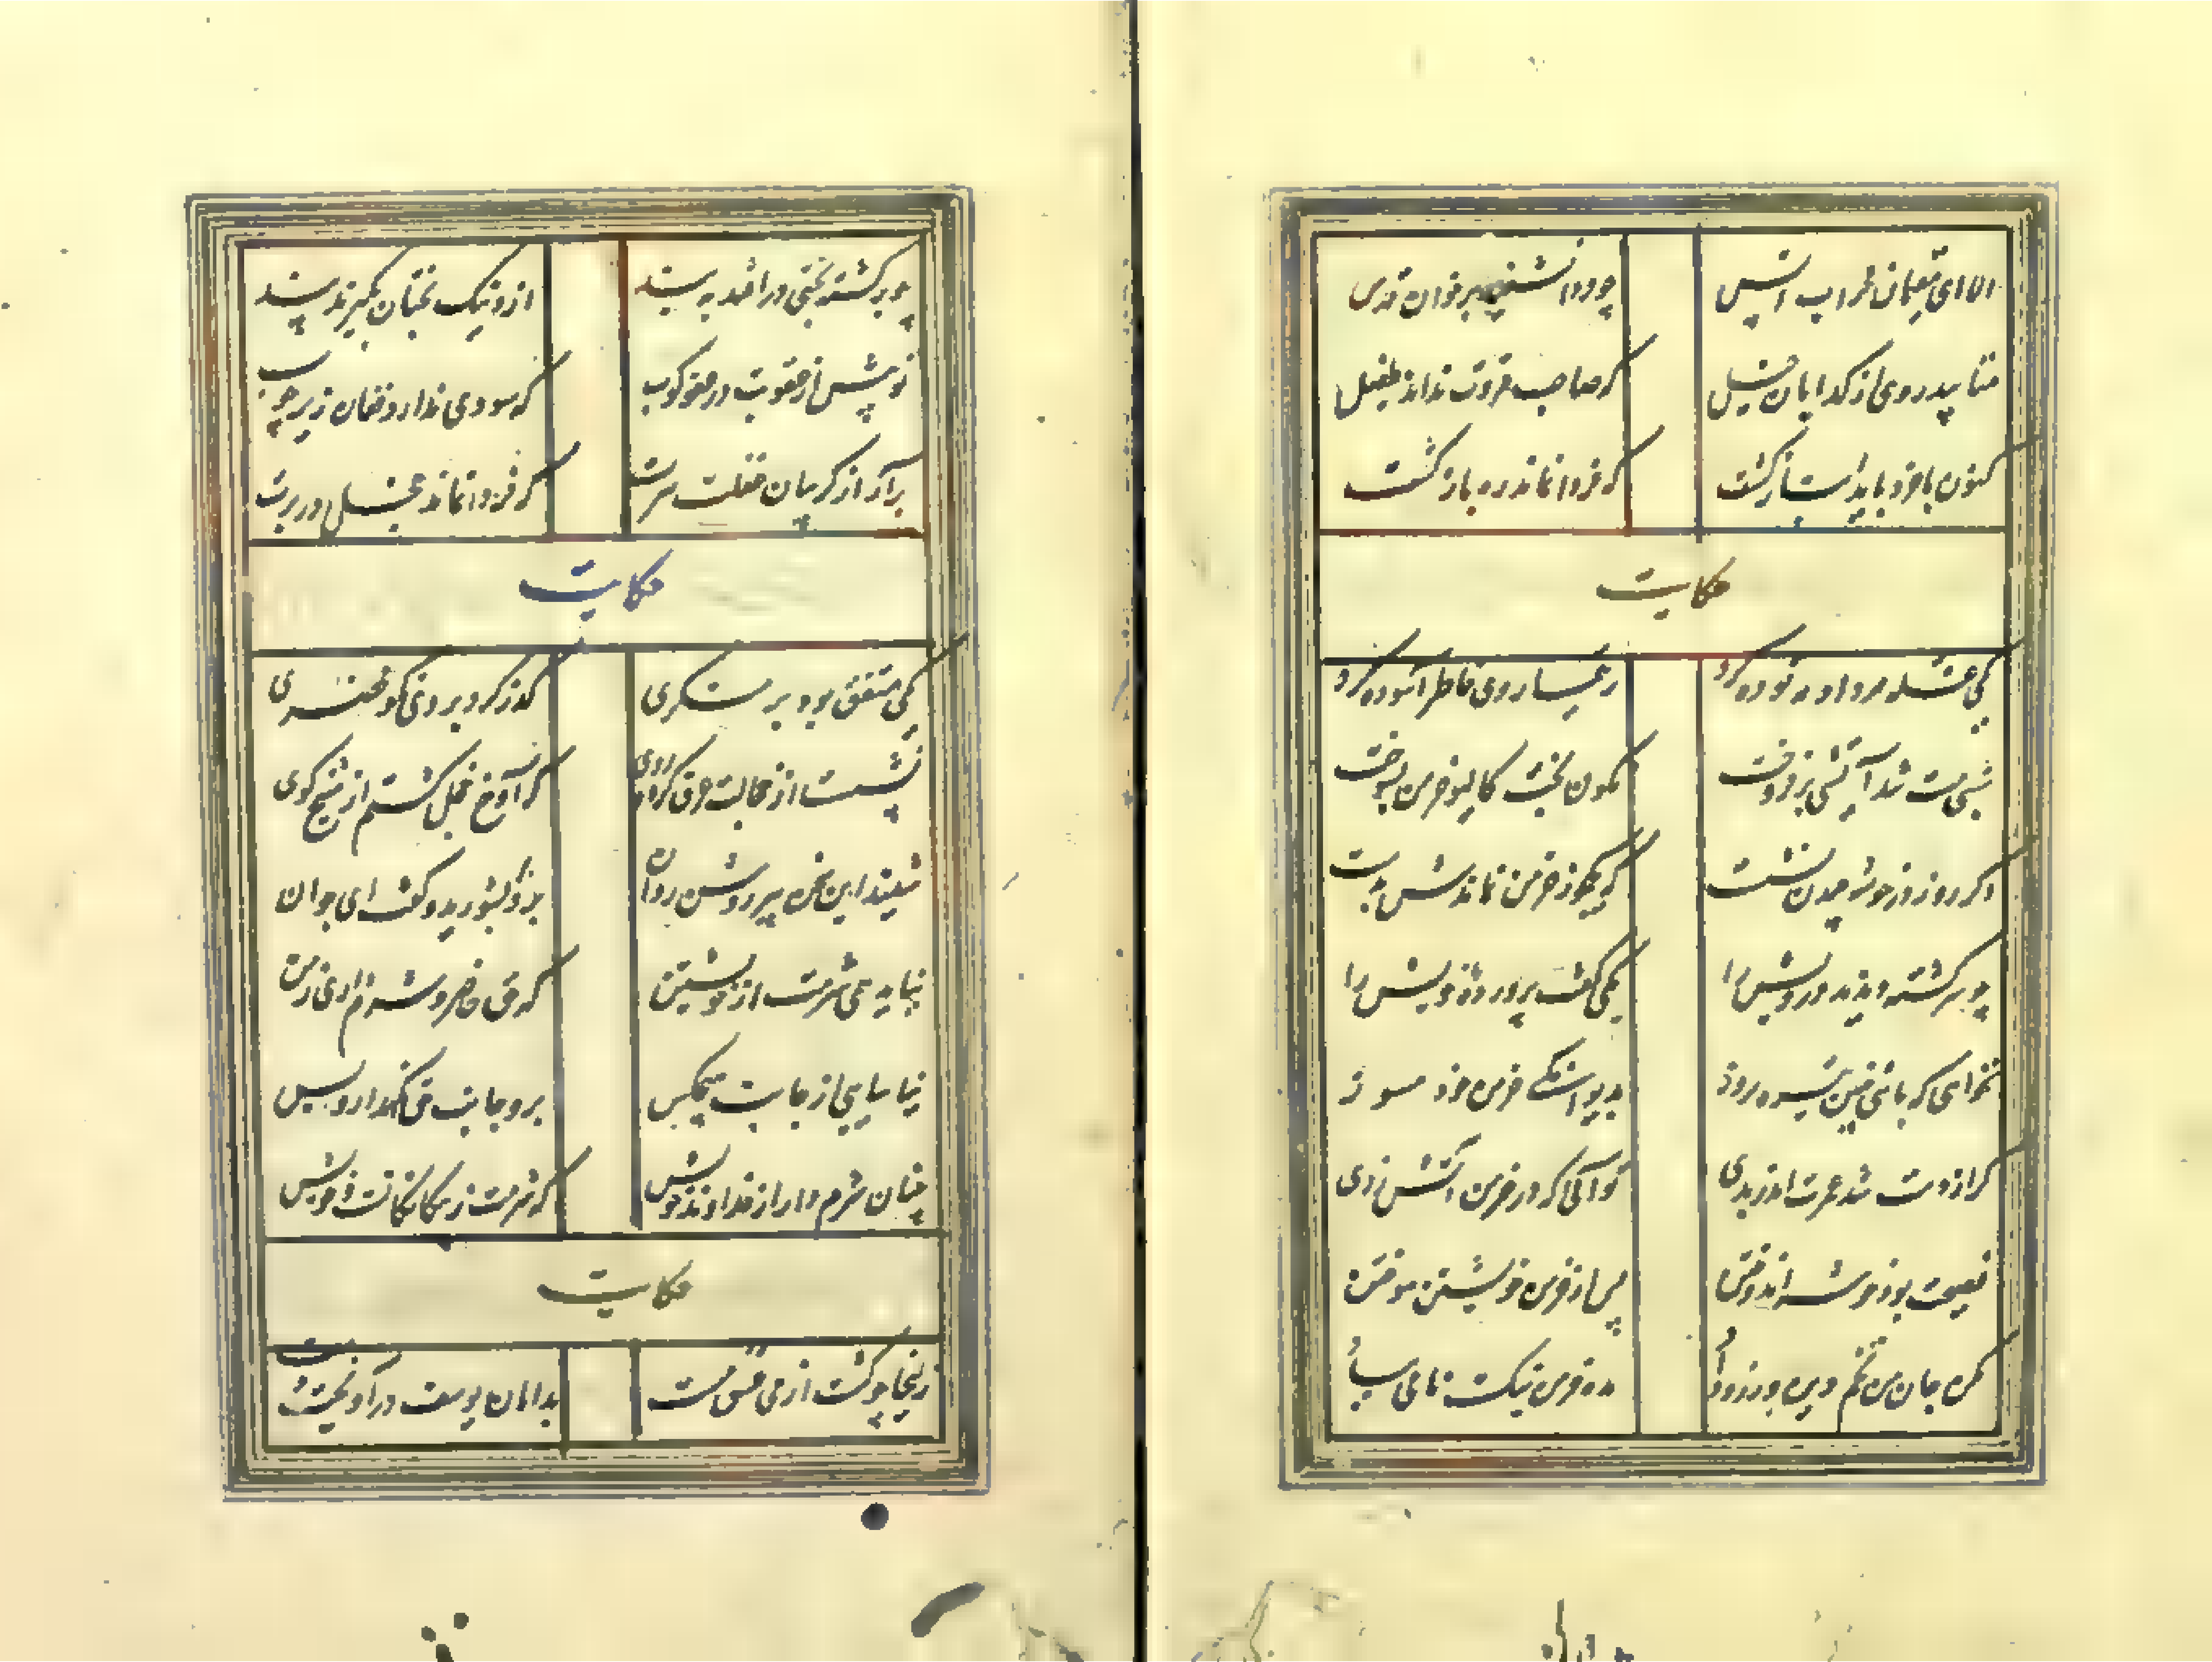 الا ای مقیمان محراب انس
چو فردا نشینید بر خوان قدس
متابید روی از گدایان خیل
که صاحب مروت نداند طفیل
کنون با خرد باید انباز گشت
که فردا نماند ره بازگشت
حکایت
یکی غله مرداد مه توده کرد
ز تیمار دی خاطر آسوده کرد
شبی مست شد آتشی بر فروخت
نگون بخت کالیو خرمن بسوخت
دگر روز در خوشه چیدن نشست
که یک جو ز خرمن نماندش بدست
چو سرگشته دیدند درویش را
یکی گفت پرورده خویش را
نخواهی که باشی چنین تیره روز
بدیوانگی خرمن خود مسوز
گر از دست شد عمرت اندر بدی
تو آنی که در خرمن آتش زدی
فضیحت بود خوشه اندوختن
پس از خرمن خویشتن سوختن
مکن جان من تخم دین ورز و داد
مده خرمن نیک نامی بباد
چو برگشته بختی در افتد به بند
ازو نیک بختان بگیرند پند
تو پیش از عقوبت در عفو کوب
که سودی ندارد فغان زیر چوب
برآر از گریبان غفلت سرت
که فردا نماند خجل در برت
حکایت
یکی متفق بود بر منکری
گذر کرد بر وی نکو محضری
نشست از خجالت عرق کرده روی
که آوخ خجل گشتم از شیخ کوی
شنید این سخن پیر روشن روان
برو بشورید و گفت ای جوان
نیاید همی شرمت از خویشتن
که حق حاضر و شرم داری ز من
نیاسایی از جانب هیچکس
برو جانب حق نگهدار و بس
چنان شرم دار از خداوند خویش
که شرمت ز بیگانگانست و خویش
حکایت
زلیخا چو گشت از می عشق مست
بدامان یوسف درآویخت دست